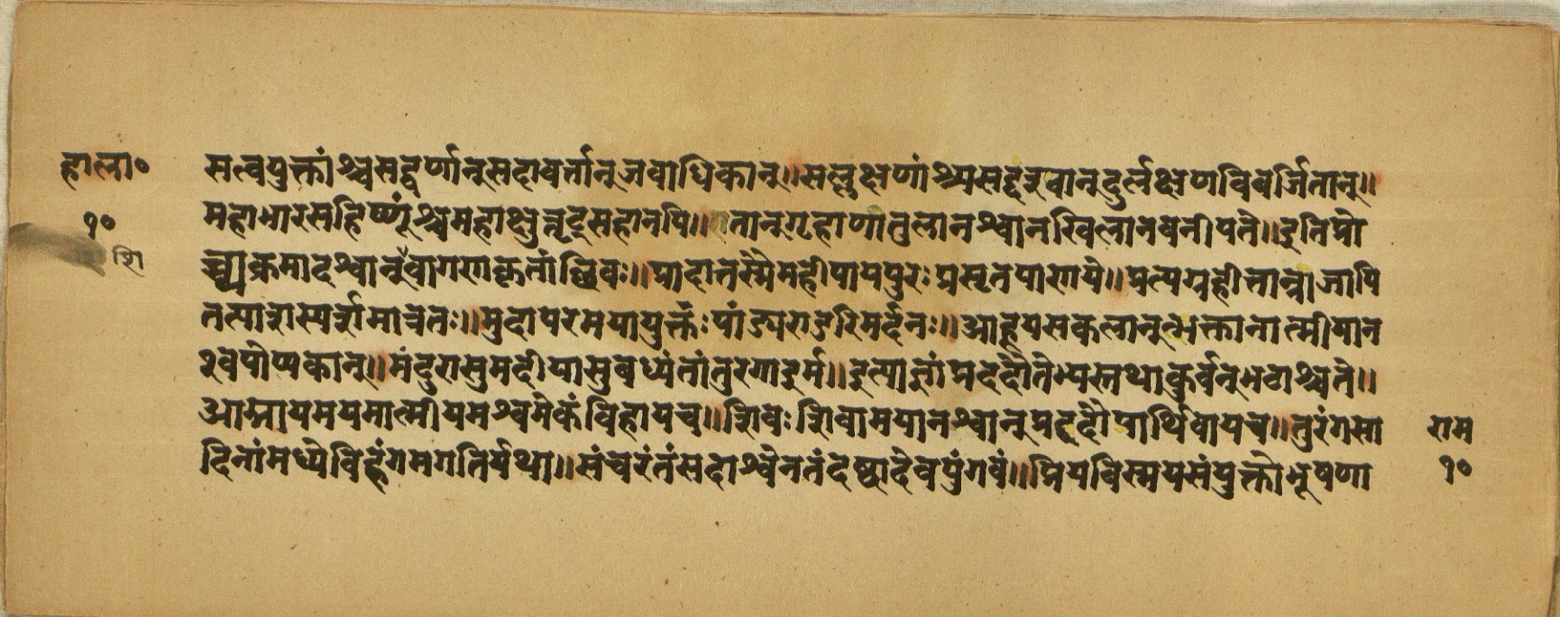 हाला० सत्वयुक्तांश्चसद्वर्णान्सदावर्त्तान्जवाधिकान्॥सल्लक्षणांश्चसदृढ्रवान्दुर्लक्षणविवर्जितान्॥
१० महाभारसहिष्णूंश्चमहाक्षुत्तृट्सहानपि॥एतान्गृहाणातुलानश्वानखिलानवनीपते॥इतिप्रो
शि च्चाक्रमादश्वान्वागराकृतांच्छिवः॥प्रादात्तस्मैमहीपायपुरःप्रसृतपाराये॥प्रत्यग्रहीत्तान्राजापि
तत्पाराास्पर्रामात्रतः॥मुदापरमयायुक्तःपांड्यराडरिमर्दनः॥आहूयसकलान्भक्तानात्मीयान
श्वपोषकान्॥मंदुरासुमदीयासुबध्यंतांतुरगाइमे॥इत्याज्ञांप्रददौतेभ्यस्तथाकुर्वन्भटाश्चते॥
आम्नायमयमात्मीयमश्वमेकंविहायच॥शिवःशिवामयानश्वान्प्रददौपार्थिवायच॥तुरंगसा
दिनांमध्येविहंगमगतिर्यथा॥संचरंतंसदाश्वेनतंदृष्ट्वादेवपुंगवं॥प्रियविस्मयसंयुक्तोभूषणा
राम
१०